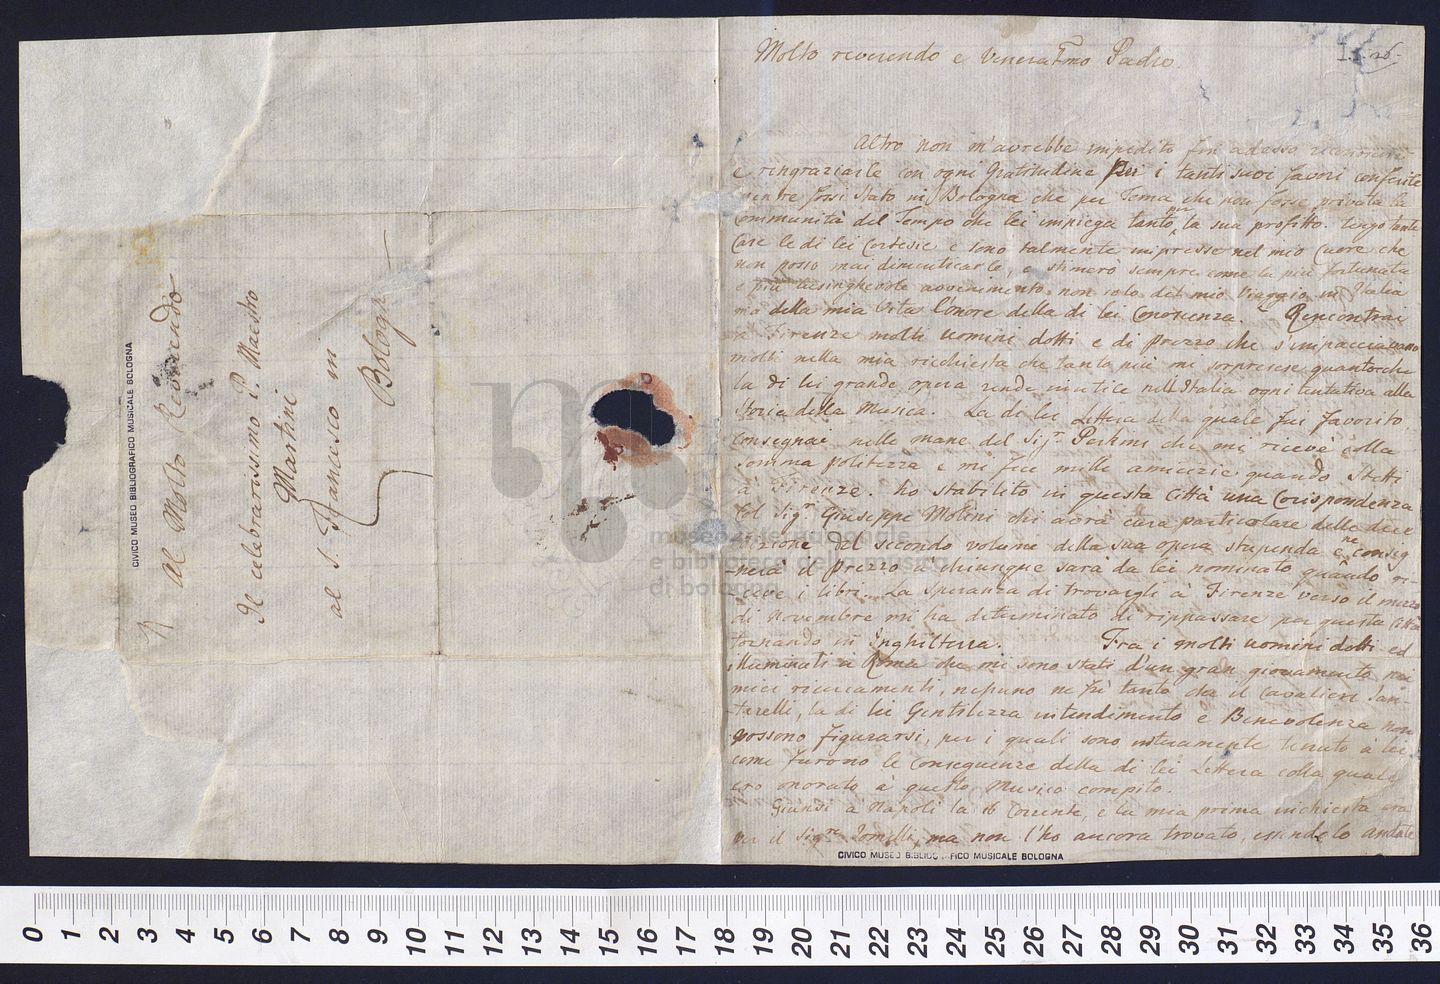 Al Molto Reverendo
Il celebrarissimo P. Maestro
Martini
al S. Francesco in
Bologna
CIVICO MUSEO BIBLIOGRAFICO MUSICALE BOLOGNA
museo internazionale
e biblioteca della musica
di bologna
Molto reverendo e Veneratmo Padre
Altro non m'avrebbe impedito fin adesso
e ringraziarle con ogni Gratitudine per i tanti suoi favori conferite
mentre forsi stato in Bologna che per Tema che non forse privata la
Communità del Tempo che lei impiega tanto la sua profitto. tengo tante
Care le di lei Cortesie e sono talmente impresse nel mio Cuore che
non posso mai dimenticarle, e stimero sempre come la più fortunata
e più lusinghevole avvenimento non solo del mio Viaggio in Italia
ma della mia Vita l'onore della di lei Conoscenza. Rencontrai
a Firenze molti uomini dotti e di prezzo che s'impacciavano
molti nella mia ricchiesta che tanto più mi sorprese quantoche
la di lei grande opera rende inutice nell'Italia ogni tentativa alla
Storia della Musica. La di lei Lettera della quale fui favorito,
Consegnae nelle mane del Sigr. Perkins chi mi riceve colla
somma politezza e mi fece mille amicizie quando Stetti
a Firenze. ho stabilito in questa Città una Corispondenza
Col Sigr. Giuseppe Molini chi avrà cura particolare delle
del secondo volume della sua opera stupenda e ne conseg
-nerà il prezzo a chiunque sarà da lei nominato quando ri-
-ceve i libri. La Speranza di trovargli à Firenze verso il mezzo
di Novembre mi ha determinato di rippassare per questa Città
tornando in Inghilterra. Fra i molti uomini dotti ed
illuminati a Roma che mi sono stati d'un gran giovamento nei
miei ricercamenti, nessuno ne fù tanto che il Cavaliere San-
-tarelli, la di lei Gentilezza intendimento e Benevolenza non
possono figurarsi, per i quali sono interamente tenuto a lei
come furono le Conseguenze della di lei Lettera colla quale
ero onorato à questo Musico compito.
Giunsi a Napoli la 16 Corrente, e la mia prima inchiesta era
per il Sigre Jomelli, ma non l'ho ancora trovato, essendo lo andato
CIVICO MUSEO BIBLIOGRAFICO MUSICALE BOLOGNA
0 1 2 3 4 5 6 7 8 9 10 11 12 13 14 15 16 17 18 19 20 21 22 23 24 25 26 27 28 29 30 31 32 33 34 35 36